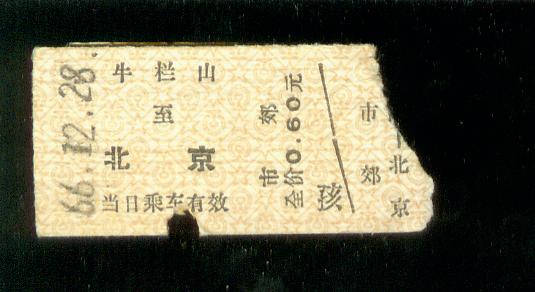 66.12.28.
牛栏山
至
北京
当日乘车有效
市郊
全价0.60元
孩
市郊
北京